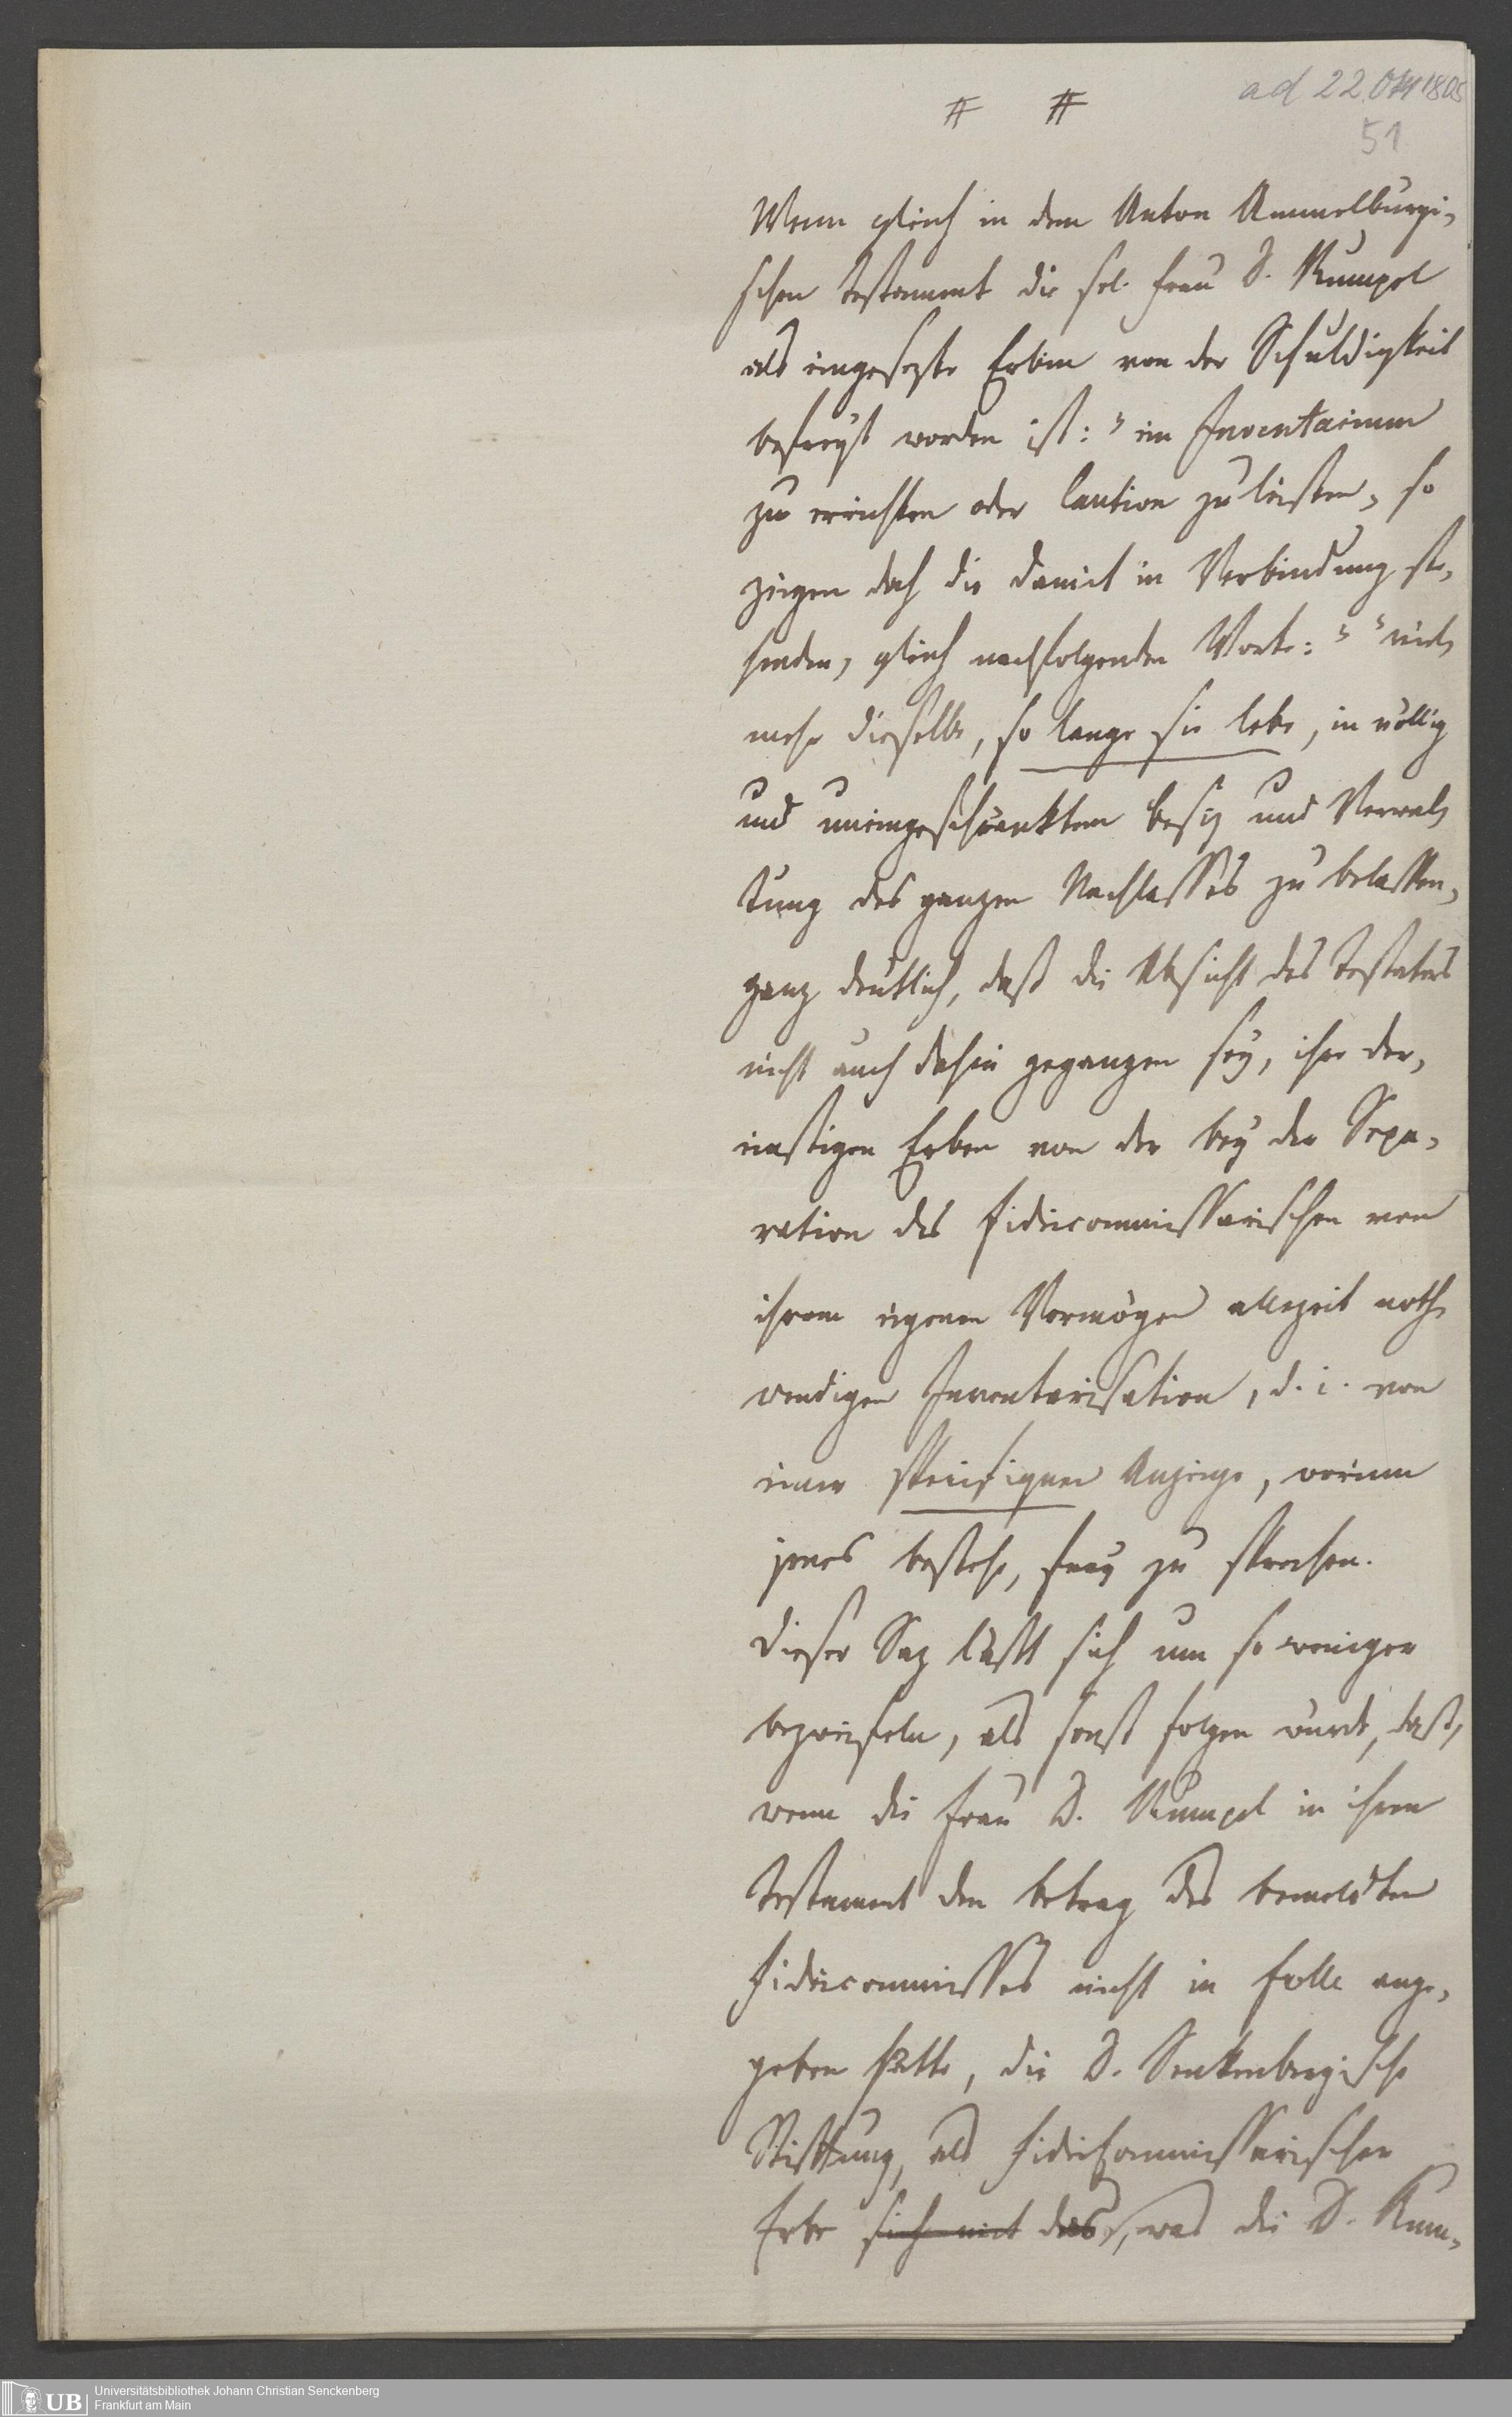 ad 22 Okt 1805
51
# #
Wenn gleich in dem Anton Ammelburgi-
schen Testament die sel. Frau D. Rumpel
als eingesezte Erbin von der Schuldigkeit
befreyt worden ist: "ein Inventarium
zu errichten oder Caution zu leisten, so
zeigen doch die damit in Verbindung ste-
henden, gleich nachfolgenden Worte: " "viel-
mehr dieselbe, so lange sie lebe, in völlig
und uneingeschränktem Besiz und Verwal-
tung des ganzen Nachlasses zu belassen,
ganz deutlich, daß die Absicht des Testators
nicht auch dahin gegangen sey, ihre der-
einstigen Erben von der bey der Sepa-
ration des fideicommissarischen von
ihrem eigenen Vermögen allezeit noth-
wendigen Inventarisation, d. i. von
einer specifiquen Anzeige, worinn
jenes bestehe, frey zu sprechen.
Dieser Saz läßt sich um so weniger
bezweifeln, als sonst folgen würde, daß,
wenn die Frau D. Rumpel in ihrem
Testament den Betrag des bemeldten
Fideicommisses nicht in folle ange-
geben hätte, die D. Senkenbergische
Stiftung, als fideicommissarischer
Erbe sich mit das, was die D. Rum-
UB
Universitätsbibliothek Johann Christian Senckenberg
Frankfurt am Main